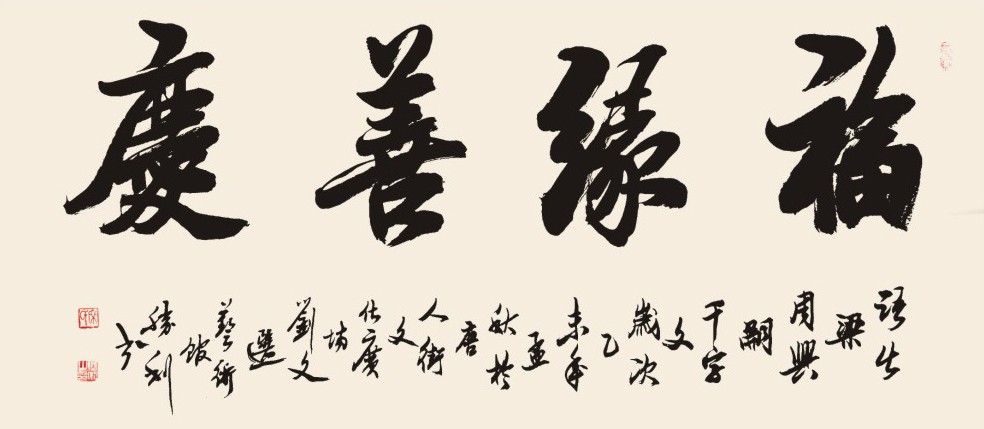 福緣善慶
語出
梁
周興
嗣
千字
文
歲次
乙
未年
孟
秋於
唐
人街
文
化廣
場
劉文
選
藝術
館
勝利
書